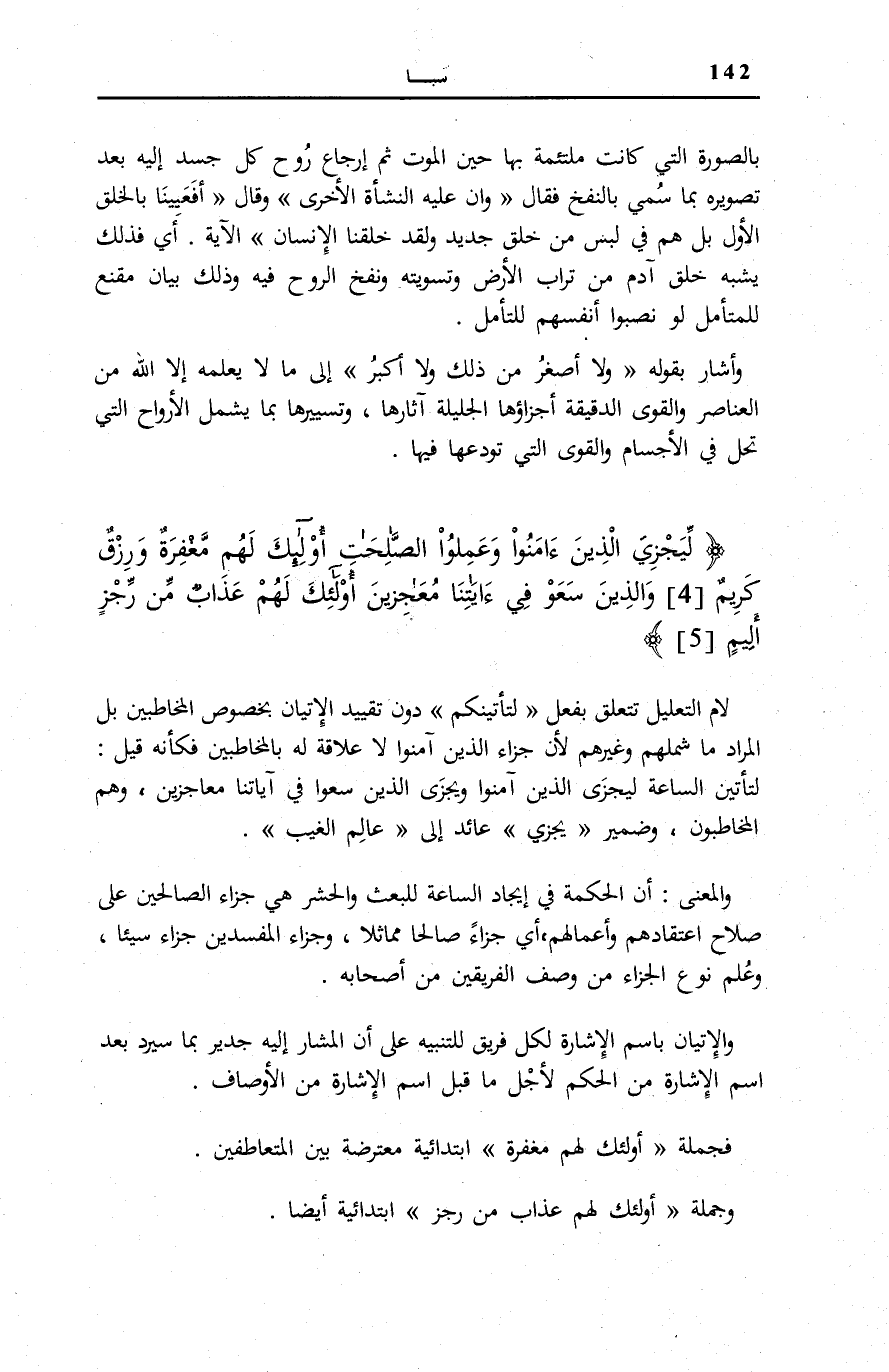 142
سبـــا
بالصورة التي كانت ملتئمة بها حين الموت ثم إرجاع رُوح كل جسد إليه بعد
تصويره بما سُمي بالنفخ فقال « وان عليه النشأة الأخرى » وقال « أفَعَيِينَا بالخلق
الأول بل هم في لبس من خلق جديد ولقد خلقنا الإنسان » الآية . أي فذلك
يشبه خلق آدم من تراب الأرض وتسويته ونفخ الروح فيه وذلك بيان مقنع
للمتأمل لو نصبوا أنفسهم للتأمل .
وأشار بقوله « ولا أصغرُ من ذلك ولا أكبرُ » إلى ما لا يعلمه إلا الله من
العناصر والقوى الدقيقة أجزاؤها الجليلة آثارها ، وتسييرها بما يشمل الأرواح التي
تحل في الأجسام والقوى التي تودعها فيها .
﴿ لِّيَجْزِيَ الْذِينَ ءَامَنُواْ وَعَمِلوُاْ الصَّٰلِحَٰتِ أُوْلَٰٓئِكَ لَهُم مَّغْفِرَةٌ وَرِزْقٌ
كَرِيمٌ [4] وَالذِينَ سَعَوْ فِي ءَايَٰتِنَا مُعَٰجِزينَ أُوْلَٰٓئِكَ لَهُمْ عَذَابٌ مِّن رِّجْزٍ
أَلِيمٍ [5] ﴾
لام التعليل تتعلق بفعل « لتأتينكم » دون تقييد الإتيان بخصوص المخاطبين بل
المراد ما شملهم وغيرهم لأن جزاء الذين آمنوا لا علاقة له بالمخاطبين فكأنه قيل :
لتأتين الساعة ليجزَى الذين آمنوا ويجزَى الذين سعوا في آياتنا معاجزين ، وهم
المخاطبون ، وضمير « يجزي » عائد إلى « عالِم الغيب » .
والمعنى : أن الحكمة في إيجاد الساعة للبعث والحشر هي جزاء الصالحين على
صلاح اعتقادهم وأعمالهم،أي جزاءً صالحا مماثلا ، وجزاء المفسدين جزاء سيئا ،
وعُلم نوع الجزاء من وصف الفريقين من أصحابه .
والإتيان باسم الإشارة لكل فريق للتنبيه على أن المشار إليه جدير بما سيرد بعد
اسم الإشارة من الحكم لأجْل ما قبل اسم الإشارة من الأوصاف .
فجملة « أولئك لهم مغفرة » ابتدائية معترضة بين المتعاطفين .
وجملة « أولئك لهم عذاب من رجز » ابتدائية أيضا .